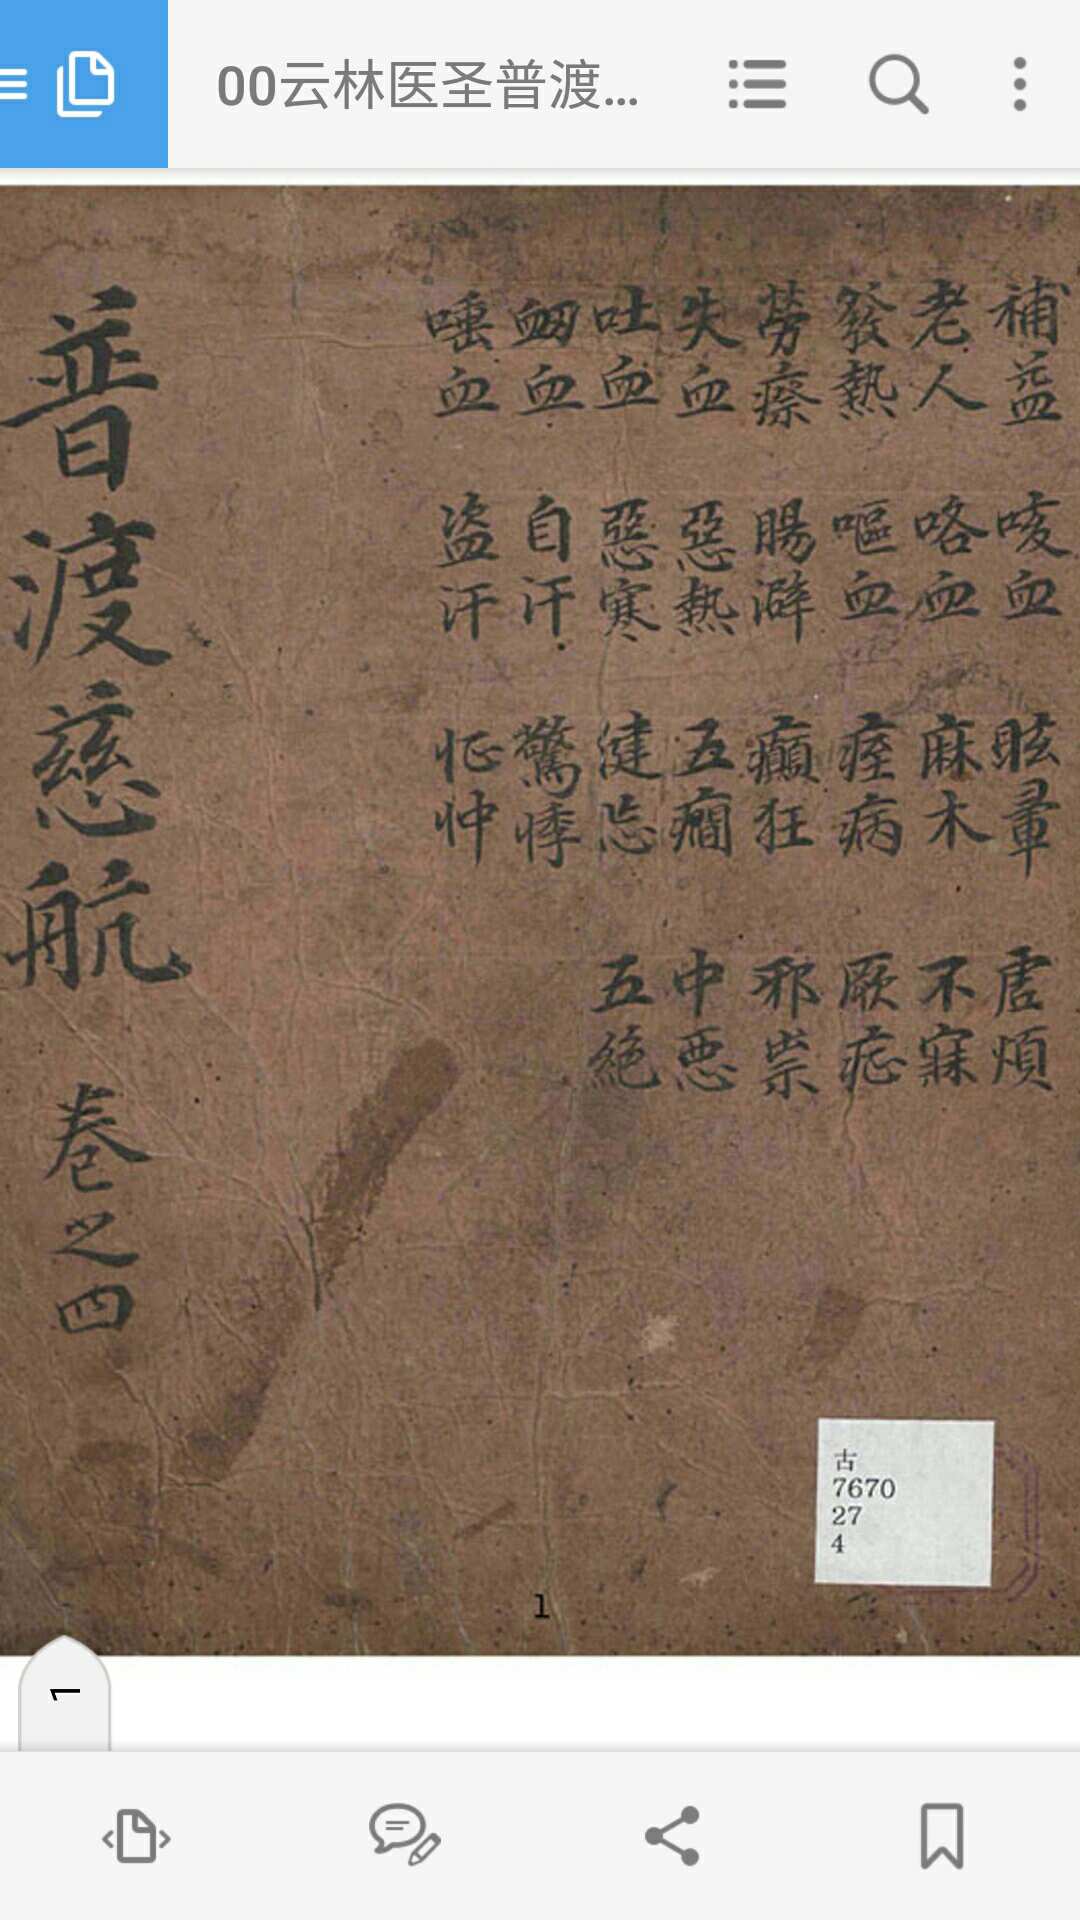 00云林医圣普渡...
補益 老人 發熱 勞瘵 失血 吐血 衂血 唾血
咳血 咯血 嘔血 腸澼 惡熱 惡寒 自汗 盜汗
眩暈 麻木 痓病 癲狂 五癇 健忘 驚悸 怔忡
虛煩 不寐 厥症 邪祟 中悪 五絕
普渡慈航 卷之四
古
7670
27
4
1
1